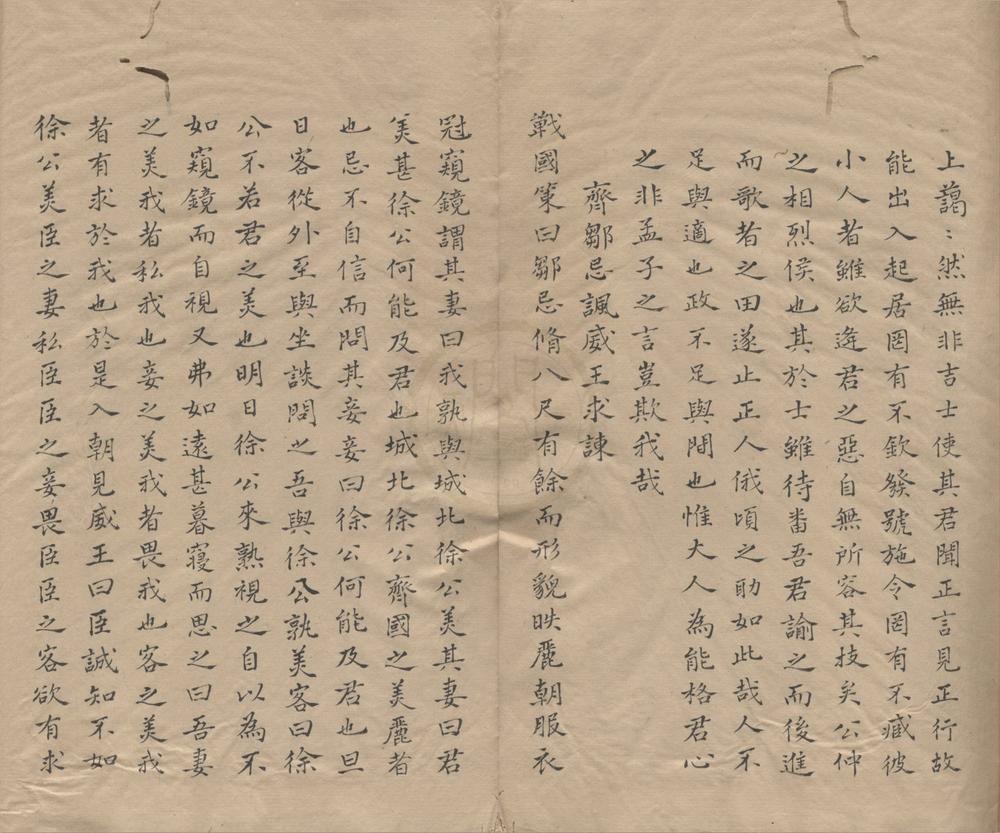 上藹〻然無非吉士使其君聞正言見正行故
能出入起居罔有不欽發號施令罔有不臧彼
小人者雖欲逄君之惡自無所容其技矣公仲
之相烈侯也其於士雖待畨吾君諭之而後進
而歌者之田遂止正人俄頃之助如此哉人不
足與適也政不足與間也惟大人為能格君心
之非孟子之言豈欺我哉
齊鄒忌諷威王求諫
戰國策曰鄒忌脩八尺有餘而形貌昳麗朝服衣
冠窺鏡謂其妻曰我孰與城北徐公美其妻曰君
美甚徐公何能及君也城北徐公齊國之美麗者
也忌不自信而問其妾妾曰徐公何能及君也旦
日客從外至與坐談問之吾與徐公孰美客曰徐
公不若君之美也明日徐公來熟視之自以為不
如窺鏡而自視又弗如遠甚暮寢而思之曰吾妻
之美我者私我也妾之美我者畏我也客之美我
者有求於我也於是入朝見威王曰臣誠知不如
徐公美臣之妻私臣臣之妾畏臣臣之客欲有求